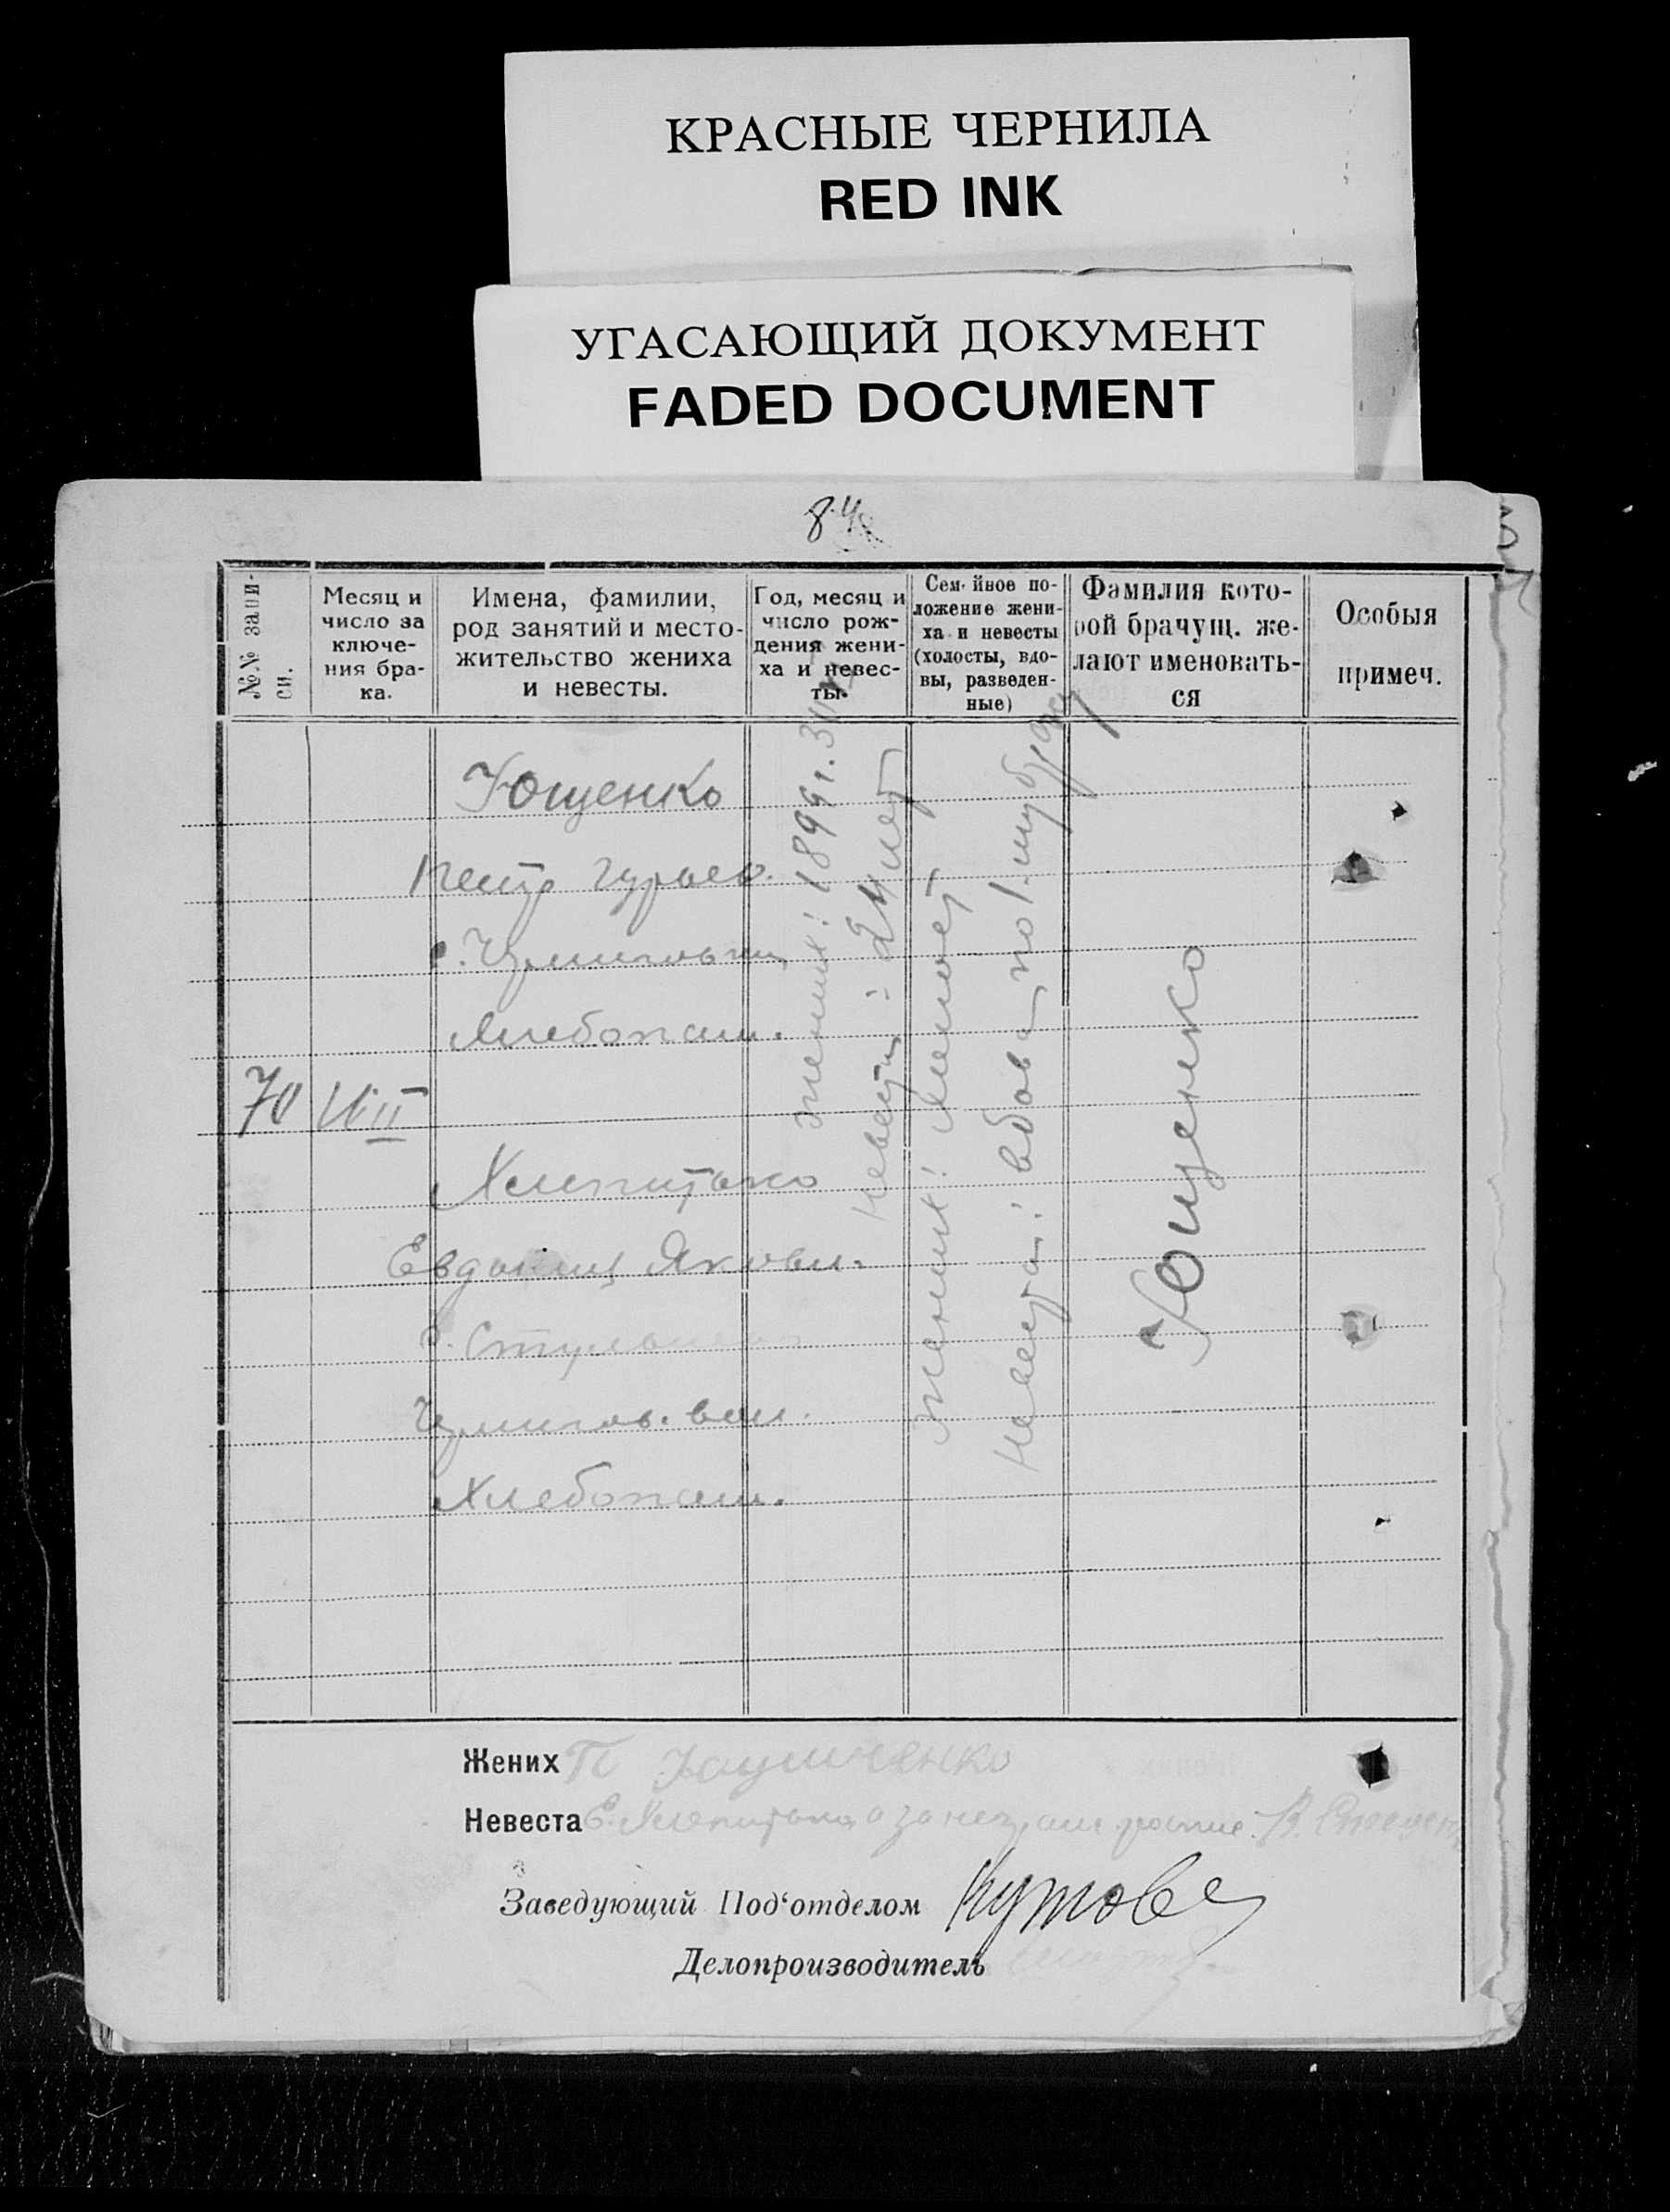 КРАСНЫЕ ЧЕРНИЛА
RED INK
УГАСАЮЩИЙ ДОКУМЕНТ
FADED DOCUMENT
84
№№ запи-
си.
Месяц и
число за
ключе-
ния бра-
ка.
Имена, фамилии,
род занятий и место-
жительство жениха
и невесты.
Год, месяц и
число рож-
дения жени-
ха и невес-
ты.
Семейное по-
ложение жени-
ха и невесты
(холосты, вдо-
вы, разведен-
ные)
Фамилия кото-
рой брачущ. же-
лают именовать-
ся
Особыя
примеч.
Ющенко
Петр Гурьев.
с.
Хлебопаш.
70
Евдокия Яковл.
с.
вол.
Хлебопаш.
жених: 1899 г.
невеста: 24 лет
жених:
невеста: вдова по 1-му браку
Ющенко
Жених П
Невеста Е.
Заведующий Под‘отделом
Делопроизводитель